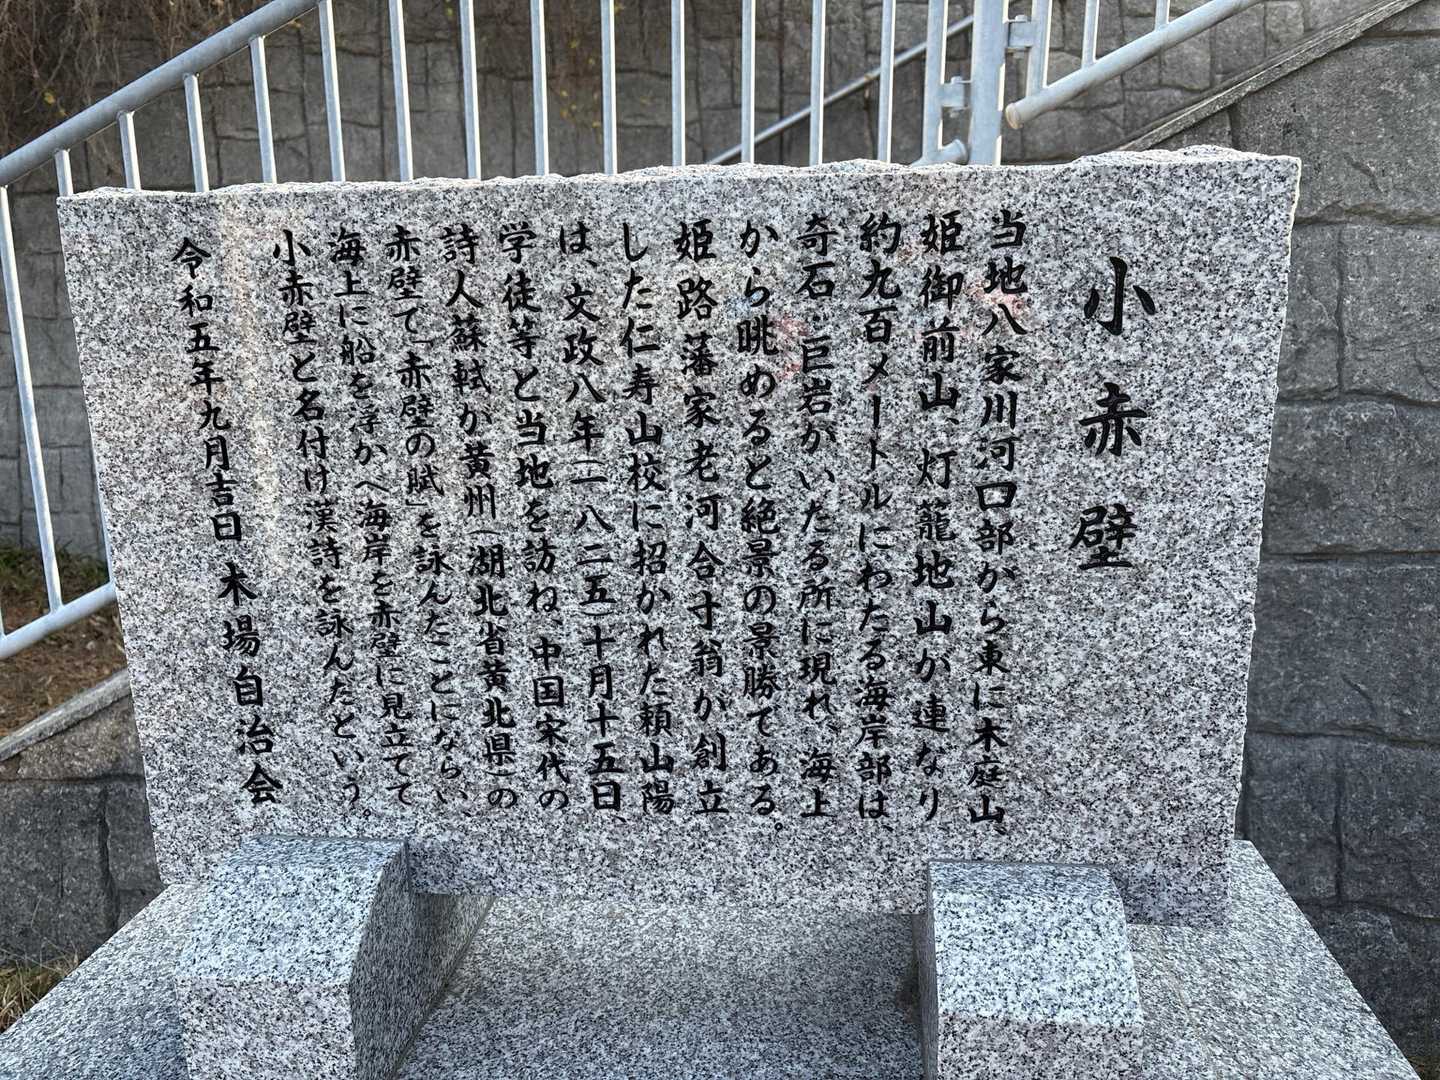 小赤壁
当地八家川河口部から東に木庭山、
姫御前山、灯籠地山が連なり
約九百メートルにわたる海岸部は、
奇石・巨岩がいたる所に現れ、海上
から眺めると絶景の景勝である。
姫路藩家老河合寸翁が創立
した仁寿山校に招かれた頼山陽
は、文政八年(一八二五)十月十五日、
学徒等と当地を訪ね、中国宋代の
詩人蘇軾が黄州(湖北省黄北県)の
赤壁で「赤壁の賦」を詠んたことにならい、
海上に船を浮かべ海岸を赤壁に見立てて
小赤壁と名付け漢詩を詠んたという。
令和五年九月吉日 木場自治会